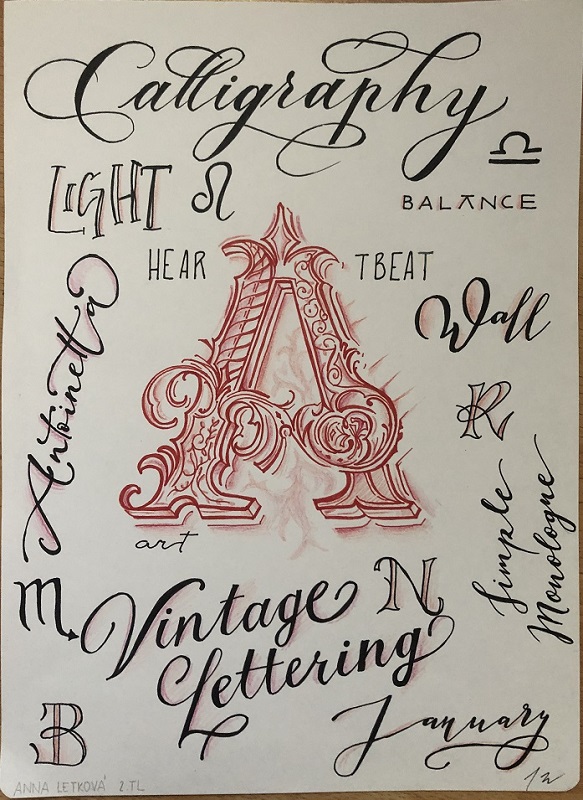 Calligraphy
LIGHT
BALANCE
HEAR TBEAT
A
Wall
Antoinetta
R
Simple
Monologue
art
N
Vintage
Lettering
January
B
ANNA LETKOVÁ 2.TL